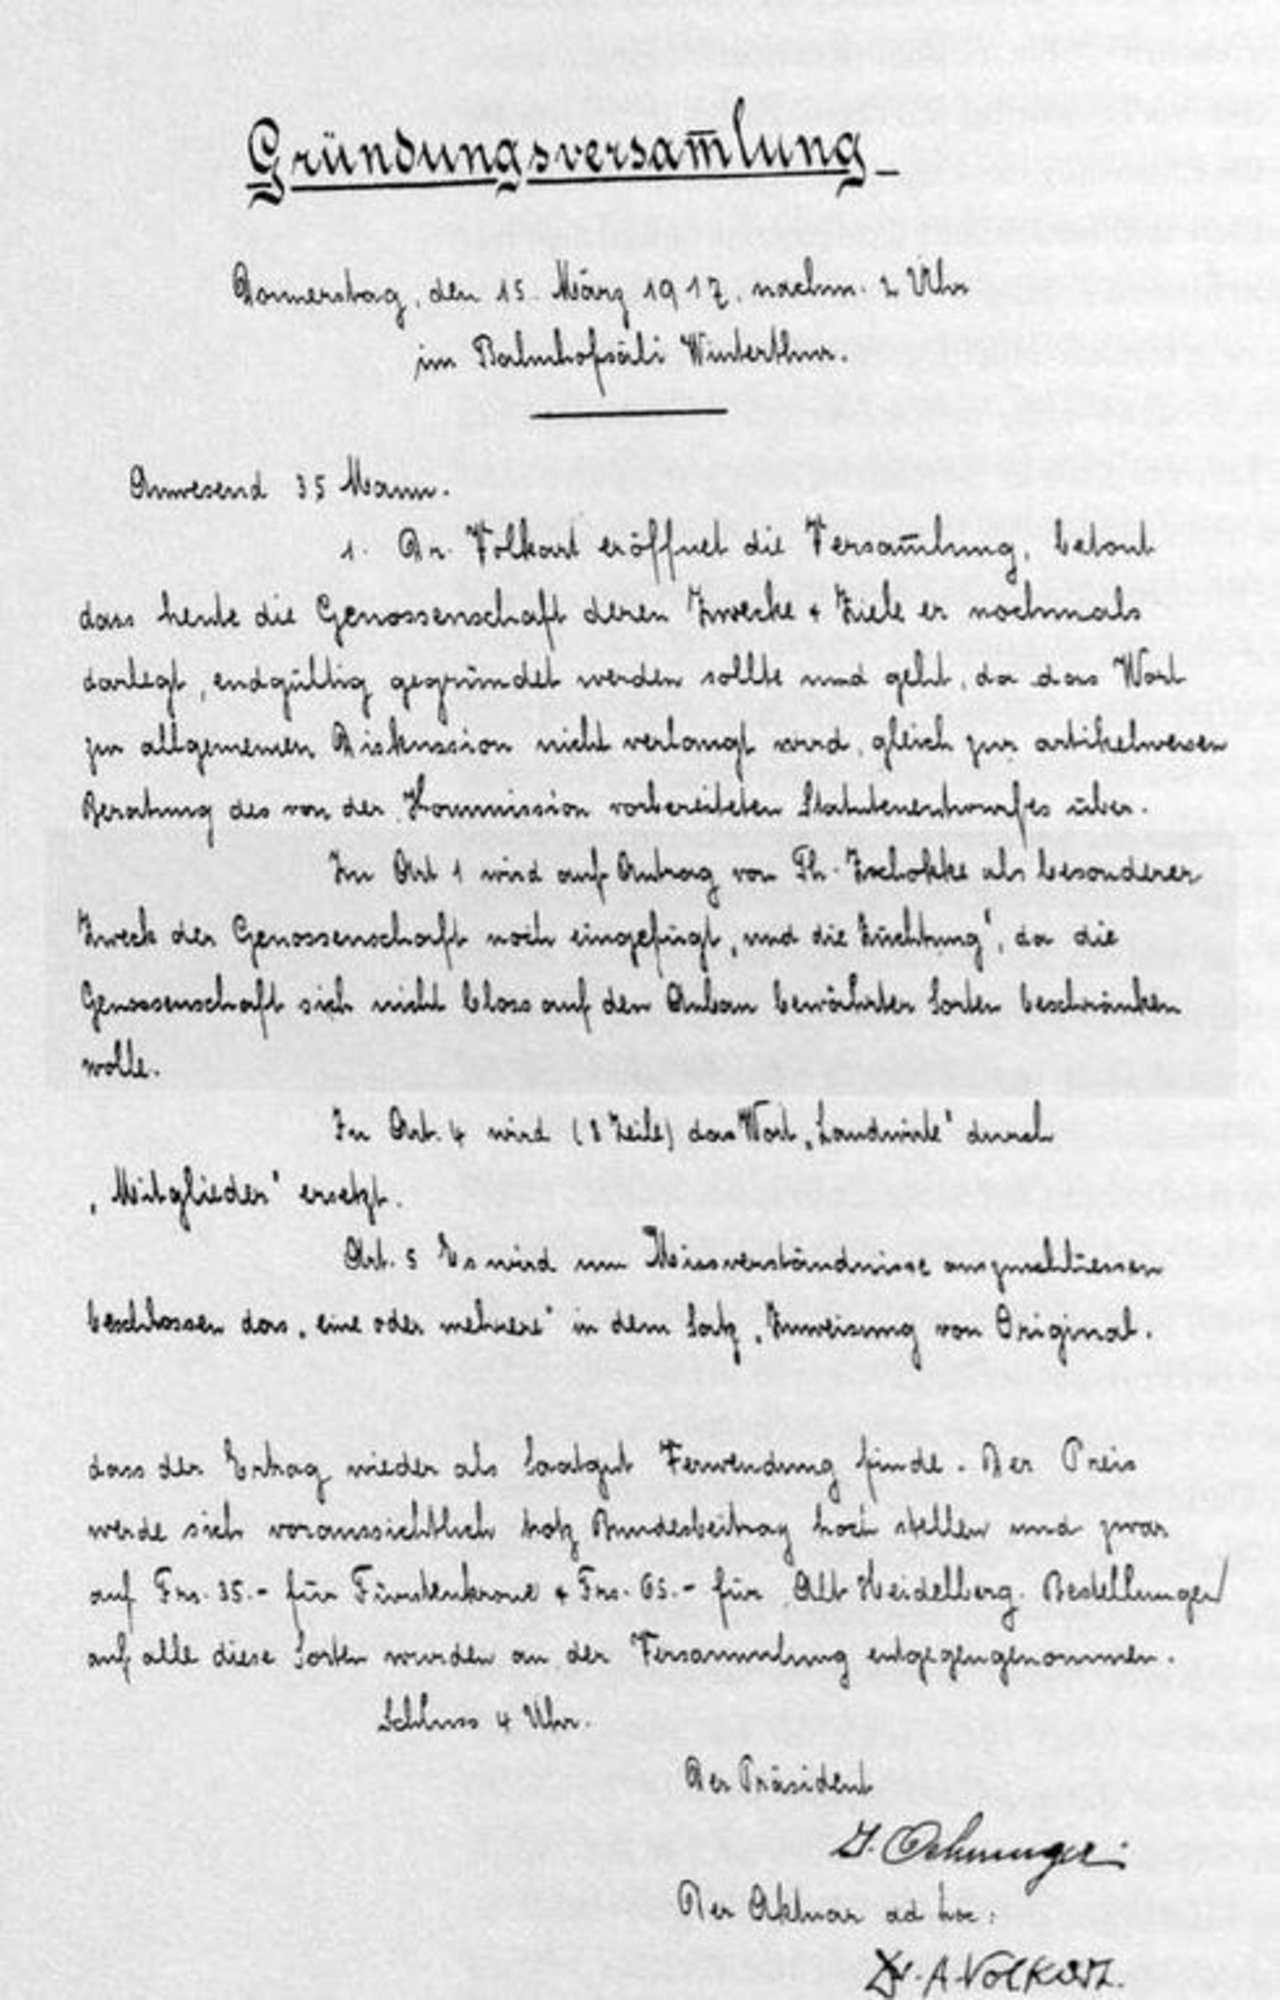 Gründungsversam̅lung
Donnerstag, den 15. März 1917, nachm. 2 Uhr
im Bahnhofsäli Winterthur.
Anwesend 35 Mann.
1. Dr. Volkart eröffnet die Versam̅lung, betont
dass heute die Genossenschaft deren Zwecke & Ziele er nochmals
darlegt, endgültig gegründet werden sollte und geht, da das Wort
zur allgemeinen Diskussion nicht verlangt wird, gleich zur artikelweisen
Beratung des von der Kommission vorbereiteten Statutenentwurfes über.
In Art 1 wird auf Antrag von Th. Zschokke als besonderer
Zweck der Genossenschaft noch eingefügt „und die Züchtung", da die
Genossenschaft sich nicht bloss auf den Anbau bewährter Sorten beschränken
wolle.
In Art. 4 wird (8 Zeile) das Wort „Landwirte" durch
„Mitglieder" ersetzt.
Art. 5 Es wird um Missverständnisse auszuschliessen
beschlossen das „eine oder mehrere" in dem Satz „Zuweisung von Original.
dass der Ertrag wieder als Saatgut Verwendung finde. Der Preis
werde sich voraussichtlich trotz Bundesbeitrag hoch stellen und zwar
auf Frs. 35.- für Fürstenkrone & Frs. 65.- für Alt Heidelberg. Bestellungen
auf alle diese Sorten wurden an der Versammlung entgegengenommen.
Schluss 4 Uhr.
Der Präsident
J. Oehninger.
Der Aktuar ad hoc:
Dr. A. Volkart.